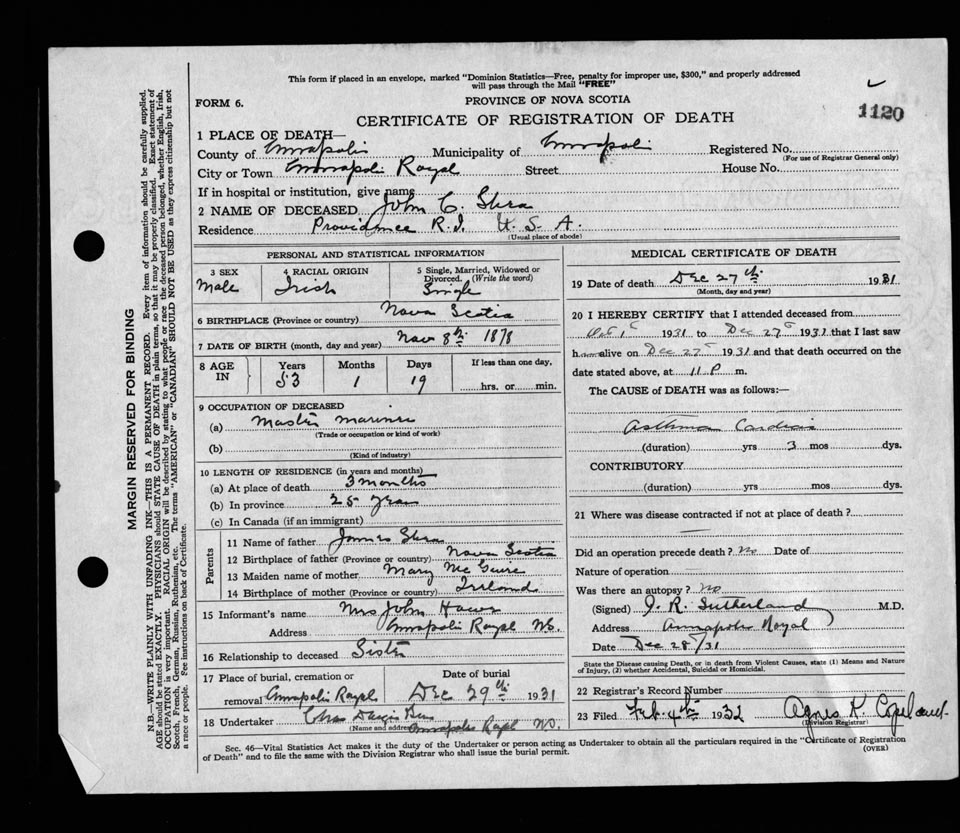 This form if placed in an envelope, marked "Dominion Statistics—Free, penalty for improper use, $300," and properly addressed
will pass through the Mail "FREE"
FORM 6.
PROVINCE OF NOVA SCOTIA
1120
CERTIFICATE OF REGISTRATION OF DEATH
1 PLACE OF DEATH—
County of Annapolis Municipality of Annapolis Registered No.
(For use of Registrar General only)
City or Town Annapolis Royal Street House No.
If in hospital or institution, give name
2 NAME OF DECEASED John C. Shea
Residence Providence R.I. U.S.A.
(Usual place of abode)
PERSONAL AND STATISTICAL INFORMATION
3 SEX 4 RACIAL ORIGIN 5 Single, Married, Widowed or
Divorced. (Write the word)
Male Irish Single
6 BIRTHPLACE (Province or country) Nova Scotia
7 DATE OF BIRTH (month, day and year) Nov 8th 1878
8 AGE IN Years Months Days If less than one day,
53 1 19 hrs. or min.
9 OCCUPATION OF DECEASED
(a) Master Mariner
(Trade or occupation or kind of work)
(b)
(Kind of industry)
10 LENGTH OF RESIDENCE (in years and months)
(a) At place of death 3 months
(b) In province 25 years
(c) In Canada (if an immigrant)
Parents
11 Name of father James Shea
12 Birthplace of father (Province or country) Nova Scotia
13 Maiden name of mother Mary McGuire
14 Birthplace of mother (Province or country) Ireland
15 Informant's name Mrs John
Address Annapolis Royal NS.
16 Relationship to deceased Sister
17 Place of burial, cremation or Date of burial
removal Annapolis Royal Dec 29th 1931
18 Undertaker Chas
(Name and address) Annapolis Royal NS.
MEDICAL CERTIFICATE OF DEATH
19 Date of death Dec 27th 1931
(Month, day and year)
20 I HEREBY CERTIFY that I attended deceased from
Oct 1st 1931 to Dec 27th 1931 that I last saw
h alive on Dec 27th 1931 and that death occurred on the
date stated above, at 11 P m.
The CAUSE of DEATH was as follows:—
Asthma Cardiac
(duration) yrs 3 mos dys.
CONTRIBUTORY
(duration) yrs mos dys.
21 Where was disease contracted if not at place of death?
Did an operation precede death? No Date of
Nature of operation
Was there an autopsy? No
(Signed) J. R. Sutherland M.D.
Address Annapolis Royal
Date Dec 28/31
State the Disease causing Death, or in death from Violent Causes, state (1) Means and Nature
of Injury, (2) whether Accidental, Suicidal or Homicidal.
22 Registrar's Record Number
23 Filed Feb. 4th 1932 Agnes K. Copeland
(Division Registrar)
Sec. 46—Vital Statistics Act makes it the duty of the Undertaker or person acting as Undertaker to obtain all the particulars required in the "Certificate of Registration
of Death" and to file the same with the Division Registrar who shall issue the burial permit.
(OVER)
MARGIN RESERVED FOR BINDING
N.B.—WRITE PLAINLY WITH UNFADING INK—THIS IS A PERMANENT RECORD. Every item of information should be carefully supplied.
AGE should be stated EXACTLY. PHYSICIANS should STATE CAUSE OF DEATH in plain terms, so that it may be properly classified. Exact statement of
OCCUPATION is very important. RACIAL ORIGIN will be described by stating to what people or race the deceased person belonged, whether English, Irish,
Scotch, French, German, Russian, Ruthenian, etc. The terms "AMERICAN" or "CANADIAN" SHOULD NOT BE USED as they express citizenship but not
a race or people. Fee instructions on back of Certificate.